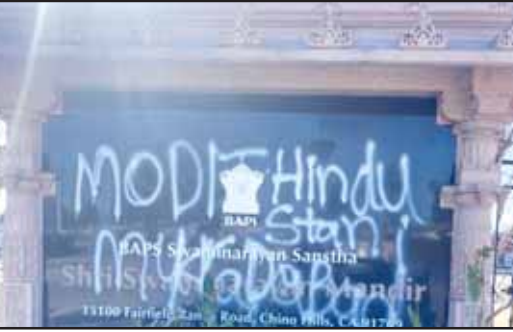 MODI Hindu
Stan
BAPS
BAPS Swaminarayan Sanstha
Shri Swaminarayan Mandir
15100 Fairfield Ranch Road, Chino Hills, CA 91709